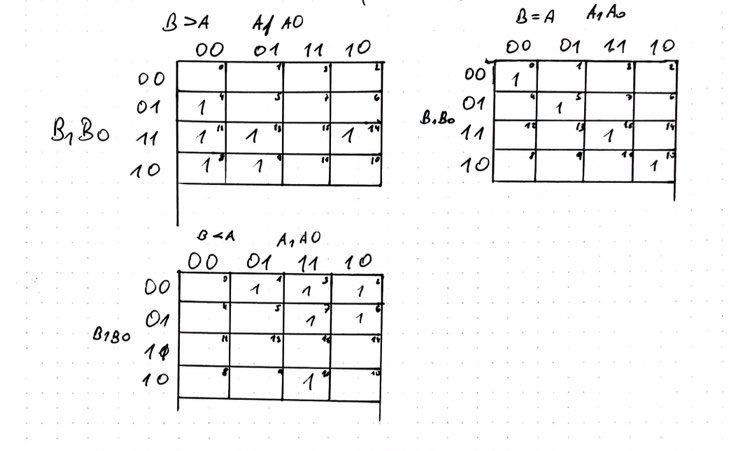 B > A A1 A0
00 01 11 10
00 0 1 3 2
01 1 4 5 7 6
B1 B0 11 1 12 1 13 15 1 14
10 1 8 1 9 11 10
B = A A1 A0
00 01 11 10
00 1 0 1 3 2
01 4 1 5 7 6
B1 B0
11 12 13 1 15 14
10 8 9 11 1 10
B < A A1 A0
00 01 11 10
00 0 1 1 1 3 1 2
01 4 5 1 7 1 6
B1 B0
10 8 9 1 10